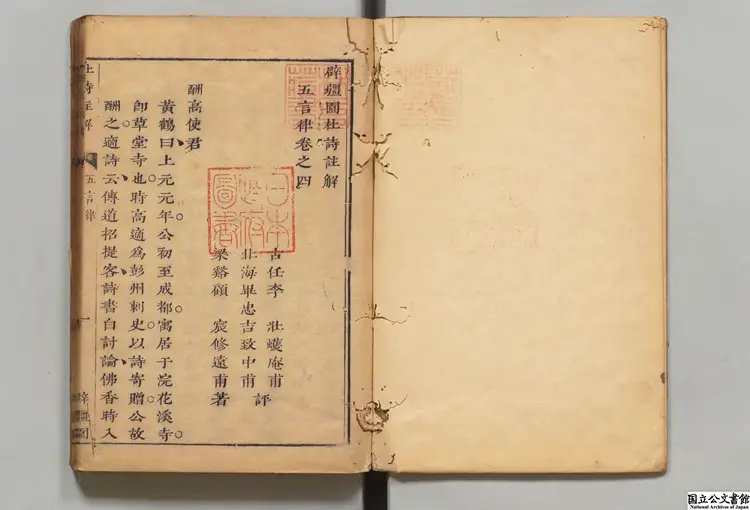 辟疆園杜詩註解
五言律卷之四
古任李　壯蠖庵甫
北海畢忠吉致中甫　評
梁谿顧　宸修遠甫著
酬高使君
黃鶴曰上元元年公初至成都寓居于浣花溪寺
卽草堂寺也時高適爲彭州刺史以詩寄贈公故
酬之適詩云傳道招提客詩書自討論佛香時入
五言律
日本政府圖書
国立公文書館
National Archives of Japan